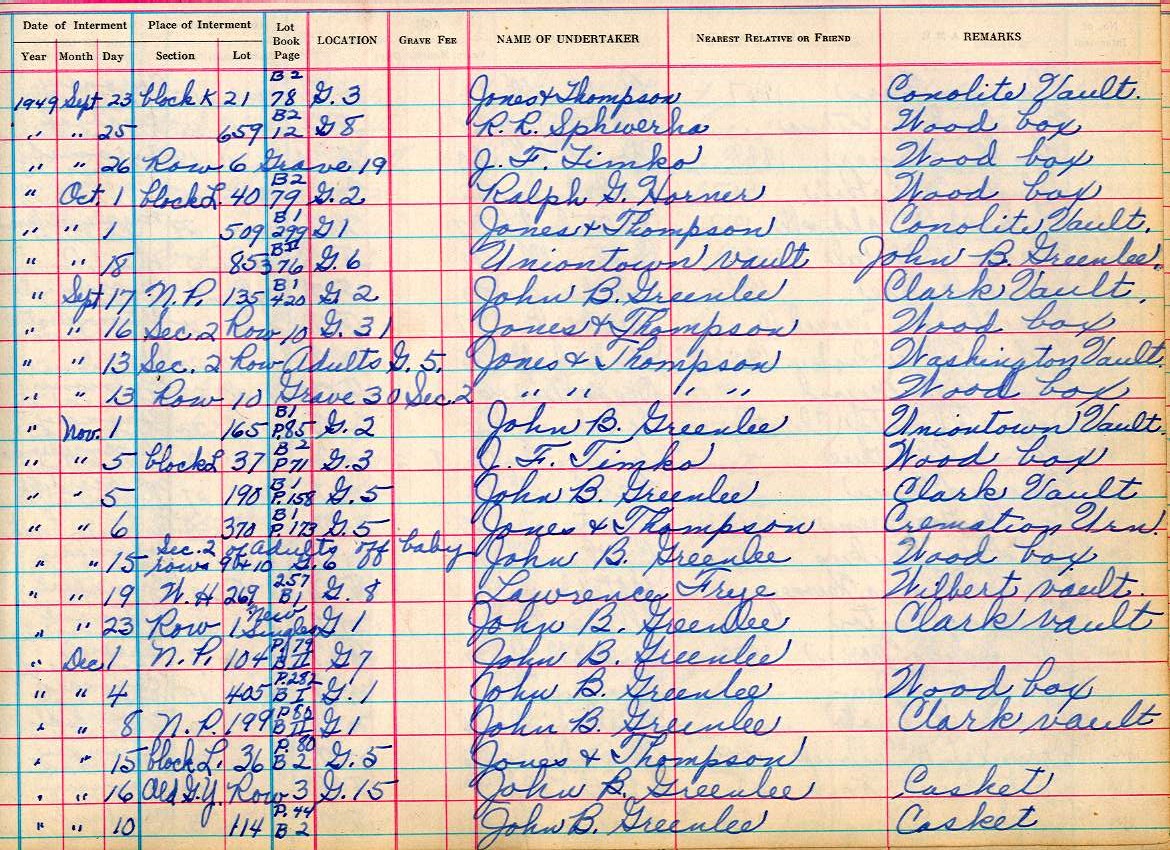 Date of Interment Place of Interment Lot Book Page LOCATION GRAVE FEE NAME OF UNDERTAKER NEAREST RELATIVE OR FRIEND REMARKS
Year Month Day Section Lot
1949 Sept 23 block K 21 B2 78 G.3 Jones & Thompson Conolite Vault.
" " 25 659 B2 12 G 8 R. R. Sphwerha Wood box
" " 26 Row 6 Grave 19 J. F. Timko Wood box
" Oct. 1 block L 40 B2 79 G.2 Ralph G. Horner Wood box
" " 1 509 B1 299 G1 Jones & Thompson Conolite Vault.
" " 18 853 BII 76 G.6 Uniontown vault John B. Greenlee.
" Sept 17 N.P. 135 B1 420 G 2 John B. Greenlee Clark Vault.
" " 16 Sec. 2 Row 10 G. 31 Jones & Thompson Wood box
" " 13 Sec. 2 Row Adults G. 5. Jones & Thompson Washington Vault.
" " 13 Row 10 Grave 30 Sec. 2 " " " " Wood box
" Nov. 1 165 B1 P.85 G. 2 John B. Greenlee Uniontown Vault.
" " 5 block L 37 B2 P71 G.3 J. F. Timko Wood box
" " 5 190 B1 P.158 G. 5 John B. Greenlee Clark Vault
" " 6 370 B1 P.173 G.5 Jones & Thompson Cremation Urn!
" " 15 Sec. 2 of adults off baby rows 9 & 10 G.6 John B. Greenlee Wood box
" " 19 W. H 269 257 B1 G. 8 Lawrence Frye Wilbert vault.
" " 23 Row 1 New Singles G 1 John B. Greenlee Clark vault
" Dec 1 N.P. 104 P.179 BII G7 John B. Greenlee
" " 4 405 P.282 BI G. 1 John B. Greenlee Wood box
" " 8 N.P. 199 P80 BII G1 John B. Greenlee Clark vault
" " 15 block L. 36 P. 80 B 2 G. 5 Jones & Thompson
" " 16 Old G.Y. Row 3 G. 15 John B. Greenlee Casket
" " 10 114 P. 44 B 2 John B. Greenlee Casket